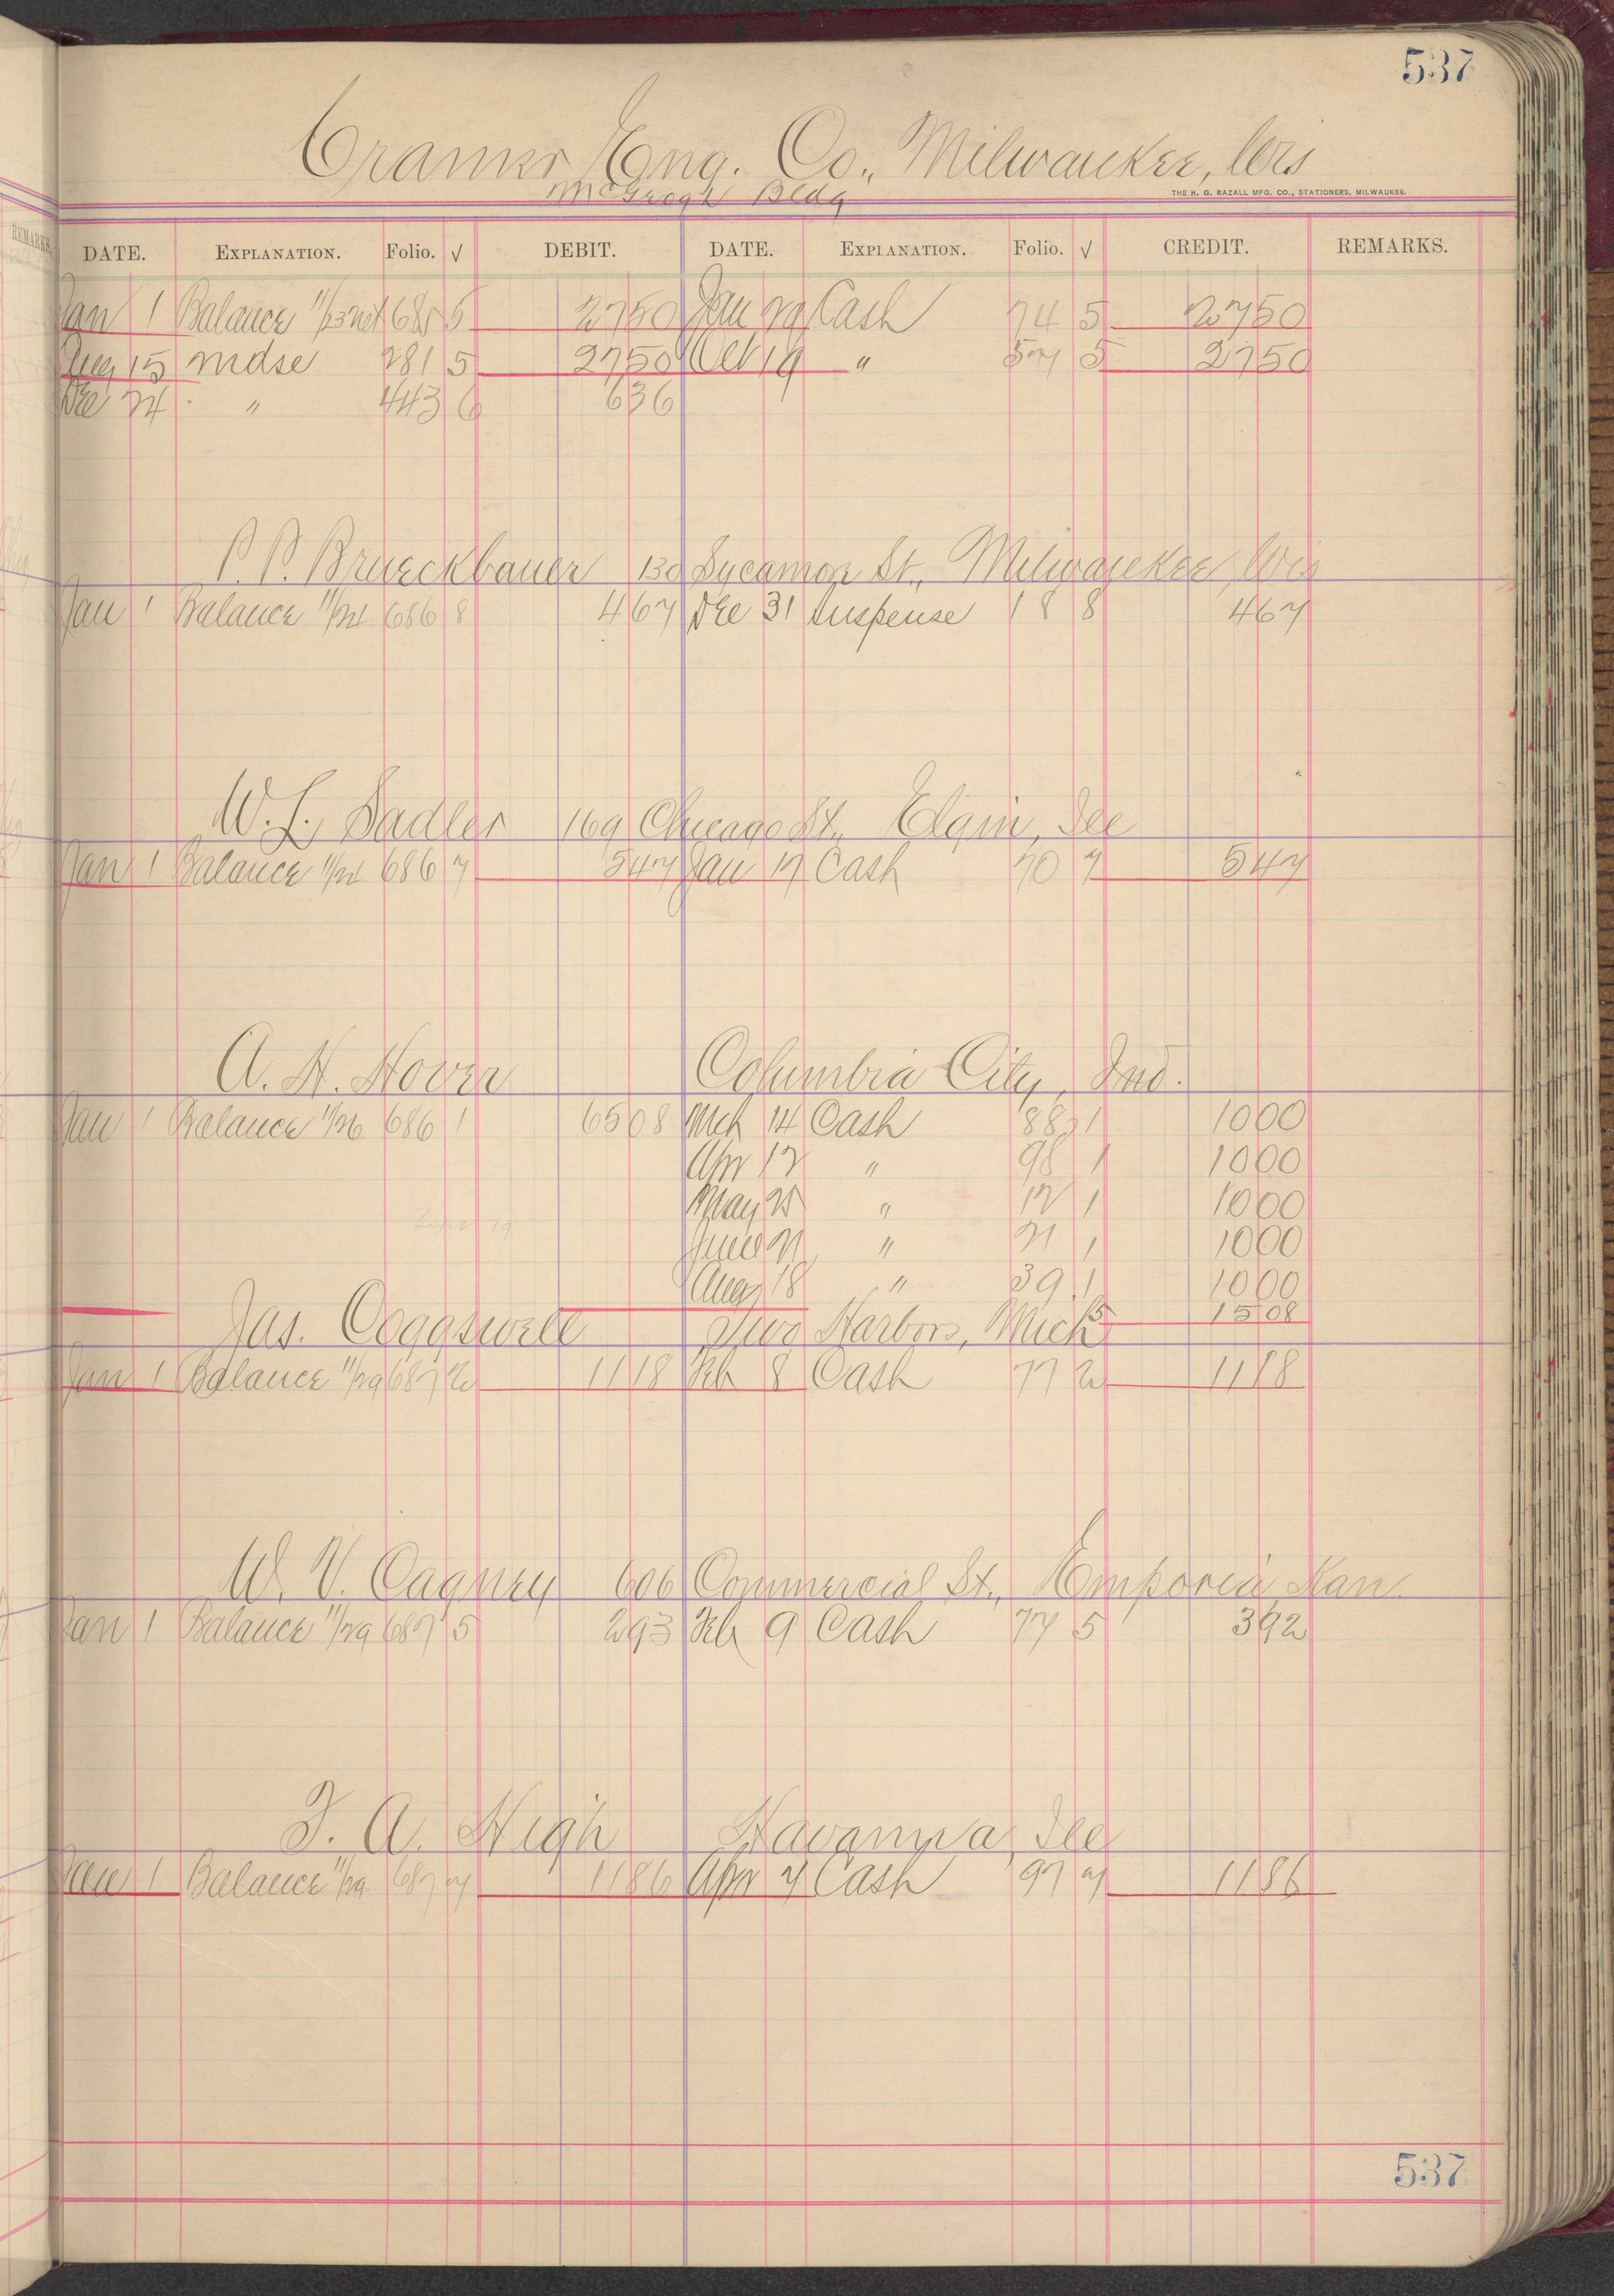 537
Cramer Eng. Co., Milwaukee, Wis
McGeoch Bldg
THE H. G. RAZALL MFG. CO., STATIONERS, MILWAUKEE.
REMARKS.
DATE. EXPLANATION. Folio. √ DEBIT. DATE. EXPLANATION. Folio. √ CREDIT. REMARKS.
Jan 1 Balance 11/23 net 685 5 2750 Jan 29 Cash 74 5 2750
Aug 15 mdse 281 5 2750 Oct 19 " 57 5 2750
Dec 24 " 443 6 636
P. P. Brueckbauer 130 Sycamore St., Milwaukee, Wis
Jan 1 Balance 11/21 686 8 467 Dec 31 Suspense 18 8 467
W. L. Sadler 169 Chicago St. Elgin, Ill
Jan 1 Balance 11/21 686 7 547 Jan 17 Cash 70 7 547
A. H. Hover Columbia City, Ind.
Jan 1 Balance 11/26 686 1 6508 Mch 14 Cash 88 1 1000
Apr 12 " 98 1 1000
May 25 " 12 1 1000
June 21 " 21 1 1000
Aug 18 " 39 1 1000
1508
Jas. Coggswell Two Harbors, Mich
Jan 1 Balance 11/29 687 2 1118 Feb 8 Cash 77 2 1118
W. V. Cagney 606 Commercial St., Emporia Kan.
Jan 1 Balance 11/29 687 5 293 Feb 9 Cash 77 5 392
F. A. High Havanna, Ill
Jan 1 Balance 11/29 687 7 1186 Apr 7 Cash 97 7 1186
537